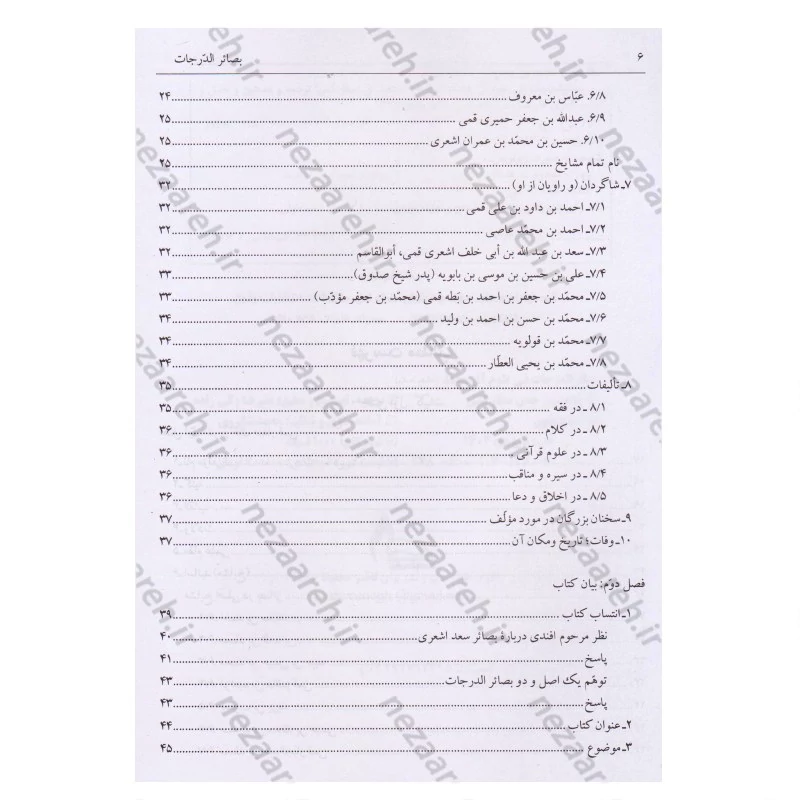 ۶ بصائر الدّرجات
۶/۸. عبّاس بن معروف ........ ۲۴
۶/۹. عبدالله بن جعفر حمیری قمی ........ ۲۵
۶/۱۰. حسین بن محمّد بن عمران اشعری ........ ۲۵
نام تمام مشایخ ........ ۲۵
۷ـ شاگردان (و راویان از او) ........ ۳۲
۷/۱ـ احمد بن داود بن علی قمی ........ ۳۲
۷/۲ـ احمد بن محمّد عاصی ........ ۳۲
۷/۳ـ سعد بن عبد الله بن أبی خلف اشعری قمی، أبوالقاسم ........ ۳۲
۷/۴ـ علی بن حسین بن موسی بن بابویه (پدر شیخ صدوق) ........ ۳۳
۷/۵ـ محمّد بن جعفر بن احمد بن بَطه قمی (محمّد بن جعفر مؤدّب) ........ ۳۳
۷/۶ـ محمّد بن حسن بن احمد بن ولید ........ ۳۴
۷/۷ـ محمّد بن قولویه ........ ۳۴
۷/۸ـ محمّد بن یحیی العطّار ........ ۳۴
۸ـ تألیفات ........ ۳۵
۸/۱ ـ در فقه ........ ۳۵
۸/۲ ـ در کلام ........ ۳۶
۸/۳ ـ در علوم قرآنی ........ ۳۶
۸/۴ ـ در سیره و مناقب ........ ۳۶
۸/۵ ـ در اخلاق و دعا ........ ۳۶
۹ـ سخنان بزرگان در مورد مؤلّف ........ ۳۷
۱۰ـ وفات؛ تاریخ ومکان آن ........ ۳۷
فصل دوّم: بیان کتاب
۱ـ انتساب کتاب ........ ۳۹
نظر مرحوم افندی دربارهٔ بصائر سعد اشعری ........ ۴۰
پاسخ ........ ۴۱
توهّم یک اصل و دو بصائر الدرجات ........ ۴۳
پاسخ ........ ۴۳
۲ـ عنوان کتاب ........ ۴۴
۳ـ موضوع ........ ۴۵
nezaareh.ir